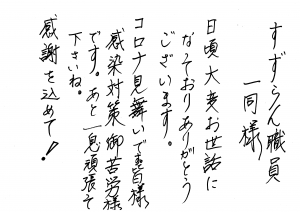 すずらん職員
一同様
日頃大変お世話に
なっておりありがとう
ございます。
コロナ見舞いです皆様
感染対策御苦労様
です。あと一息頑張って
下さいね。
感謝を込めて!